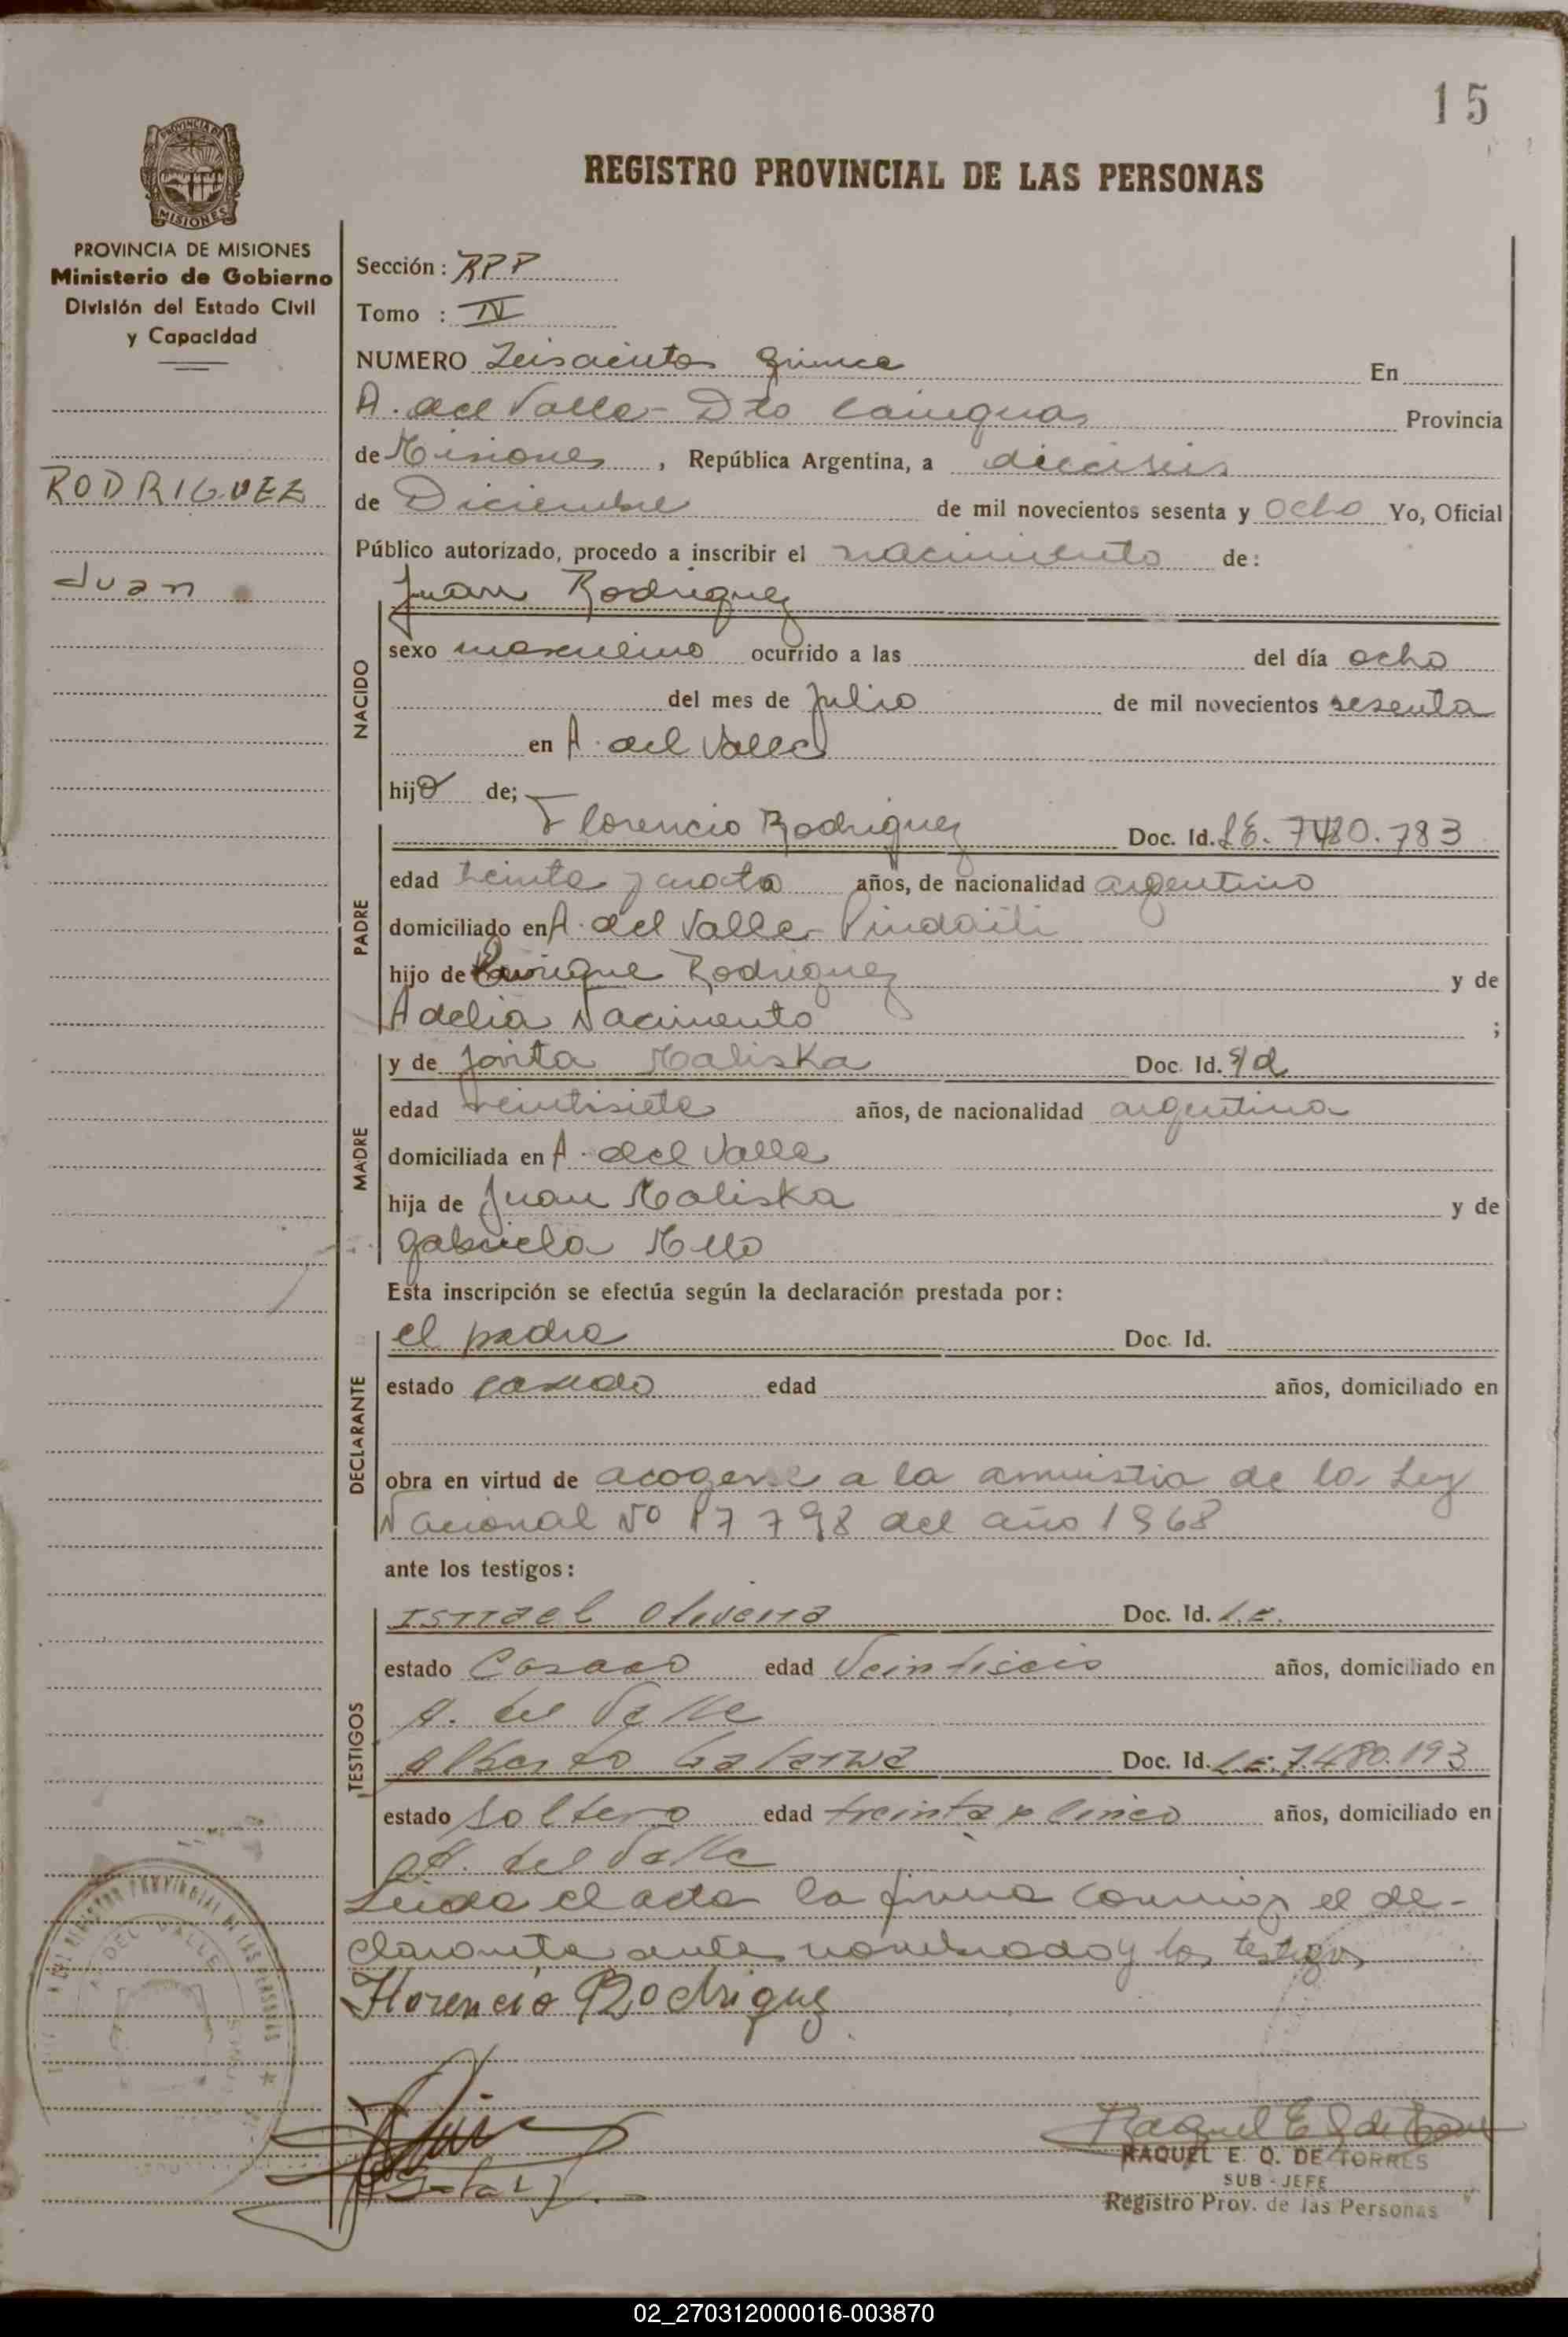 15
PROVINCIA DE
MISIONES
REGISTRO PROVINCIAL DE LAS PERSONAS
PROVINCIA DE MISIONES
Ministerio de Gobierno
División del Estado Civil
y Capacidad
RODRIGUEZ
Juan
Sección: RPP
Tomo : IV
NUMERO Seiscientos quince En
A. del Valle - Dto Cainguas Provincia
de Misiones, República Argentina, a dieciseis
de Diciembre de mil novecientos sesenta y ocho Yo, Oficial
Público autorizado, procedo a inscribir el nacimiento de:
Juan Rodriguez
NACIDO
sexo masculino ocurrido a las del día ocho
del mes de Julio de mil novecientos sesenta
en A. del Valle
hijo de;
PADRE
Florencio Rodriguez Doc. Id. LE. 7480.783
edad treinta y cuatro años, de nacionalidad argentino
domiciliado en A. del Valle - Pindaiti
hijo de Enrique Rodriguez y de
Adelia Nacimento ;
MADRE
y de Jovita Maliska Doc. Id. s/d
edad veintisiete años, de nacionalidad argentina
domiciliada en A. del Valle
hija de Juan Maliska y de
Gabriela Mello
Esta inscripción se efectúa según la declaración prestada por:
DECLARANTE
el padre Doc. Id.
estado casado edad años, domiciliado en
obra en virtud de acogerse a la amnistia de la Ley
Nacional Nº 17798 del año 1968
ante los testigos:
TESTIGOS
Ismael Olivera Doc. Id. L.E.
estado Casado edad Veintiseis años, domiciliado en
A. del Valle
Alberto Galarza Doc. Id. L.E. 7.480.193
estado Soltero edad treinta y cinco años, domiciliado en
A. del Valle
Leida el acta la firma conmigo el de-
clarante antes nombrado y los testigos
Florencio Rodriguez
A. DEL VALLE
RAQUEL E. O. DE TORRES
SUB - JEFE
Registro Prov. de las Personas
02_270312000016-003870